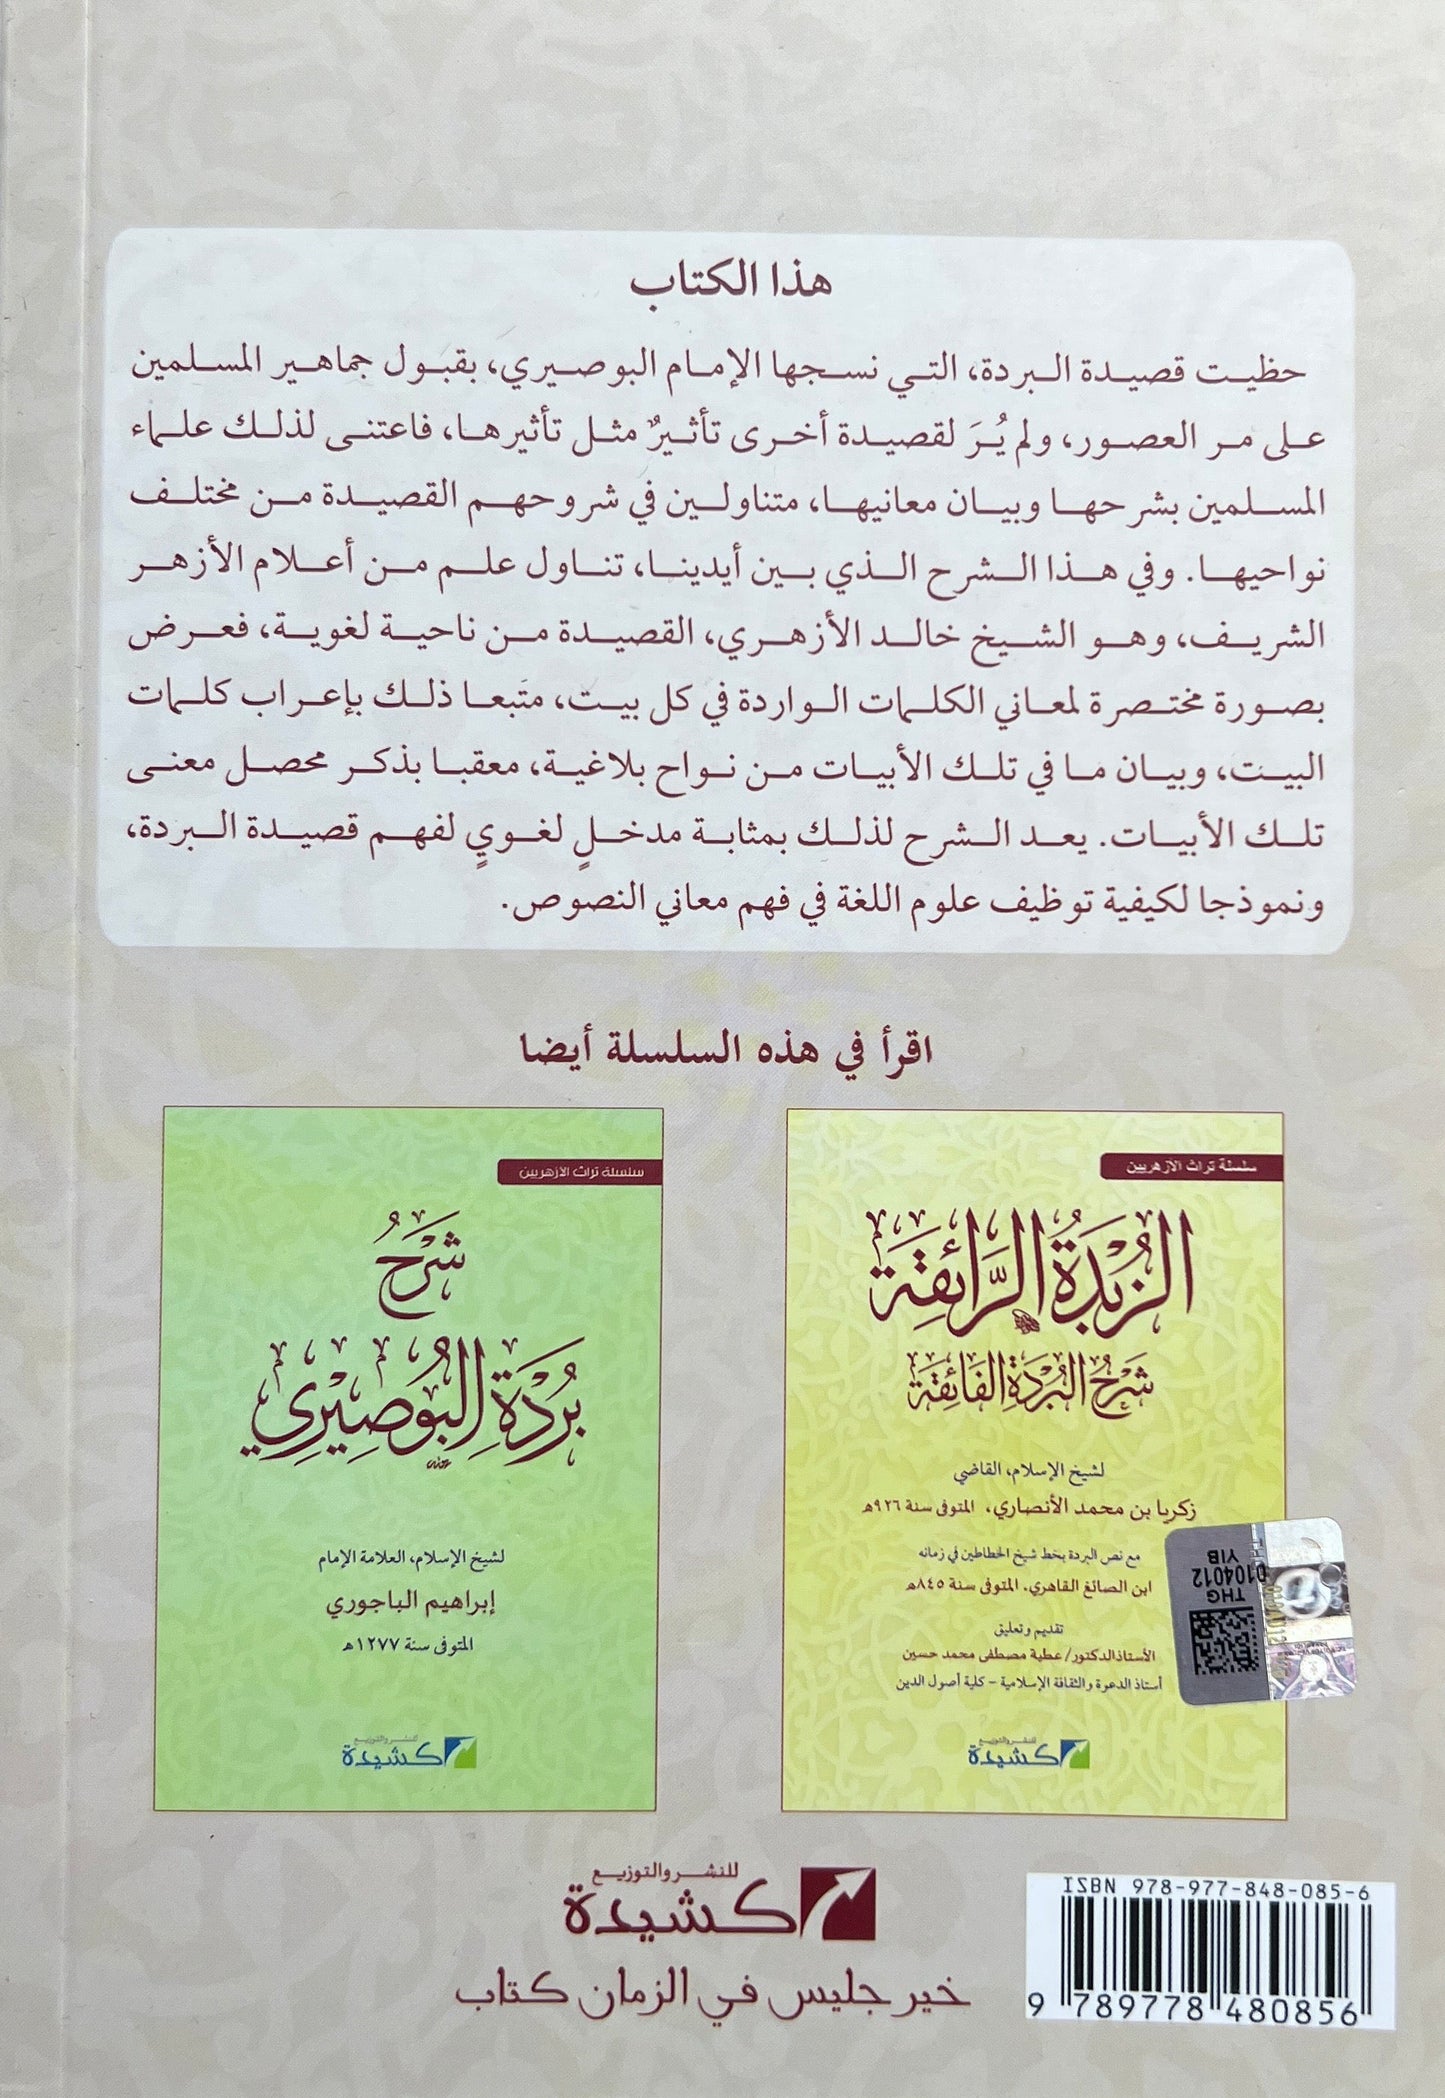 هذا الكتاب
حظيت قصيدة البردة، التي نسجها الإمام البوصيري، بقبول جماهير المسلمين
على مر العصور، ولم يُرَ لقصيدة أخرى تأثيرٌ مثل تأثيرها، فاعتنى لذلك علماء
المسلمين بشرحها وبيان معانيها، متناولين في شروحهم القصيدة من مختلف
نواحيها. وفي هذا الشرح الذي بين أيدينا، تناول علم من أعلام الأزهر
الشريف، وهو الشيخ خالد الأزهري، القصيدة من ناحية لغوية، فعرض
بصورة مختصرة لمعاني الكلمات الواردة في كل بيت، متَبعا ذلك بإعراب كلمات
البيت، وبيان ما في تلك الأبيات من نواح بلاغية، معقبا بذكر محصل معنى
تلك الأبيات. يعد الشرح لذلك بمثابة مدخلٍ لغويٍ لفهم قصيدة البردة،
ونموذجا لكيفية توظيف علوم اللغة في فهم معاني النصوص.
اقرأ في هذه السلسلة أيضا
سلسلة تراث الأزهريين
الزُبْدَةُ الرَّائِقَة
شَرْحُ البُرْدَةِ الفَائِقَة
لشيخ الإسلام، القاضي
زكريا بن محمد الأنصاري، المتوفى سنة ٩٢٦هـ
مع نص البردة بخط شيخ الخطاطين في زمانه
ابن الصائغ القاهري، المتوفى سنة ٨٤٥هـ
تقديم وتعليق
الأستاذ الدكتور/ عطية مصطفى محمد حسين
أستاذ الدعوة والثقافة الإسلامية - كلية أصول الدين
للنشر والتوزيع
كشيدة
سلسلة تراث الأزهريين
شَرْحُ
بُرْدَةِ البُوصِيْرِي
لشيخ الإسلام، العلامة الإمام
إبراهيم الباجوري
المتوفى سنة ١٢٧٧هـ
للنشر والتوزيع
كشيدة
THG
0104012
YIB
للنشر والتوزيع
كشيدة
خير جليس في الزمان كتاب
ISBN 978-977-848-085-6
9 789778 480856